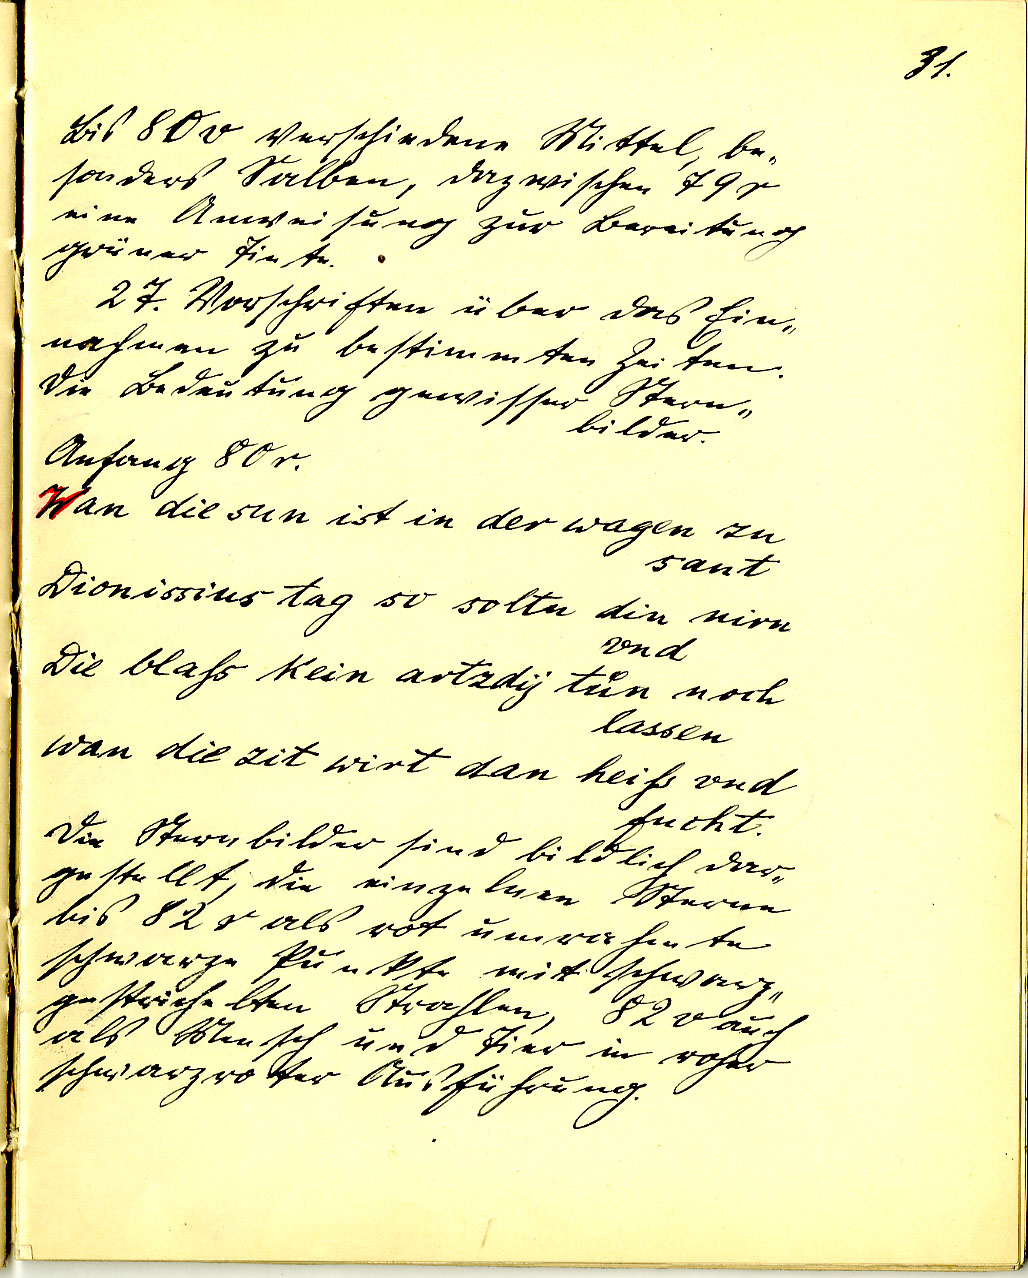 31.
Bis 80v verschiedene Mittel, be-
sonders Salben, dazwischen 79r
eine Anweisung zur Bereitung
grüner Tinte.
27. Vorschriften über das Ein-
nehmen zu bestimmten Zeiten.
Die Bedeutung gewisser Stern-
bilder.
Anfang 80r.
Wan die sun ist in der wagen zu
sant
Dionissius tag so soltu din nirn
vnd
Die blaſs kein artzdij tůn noch
lassen
wan die zit wirt dan heiſs vnd
fucht.
Die Sternbilder sind bildlich dar-
gestellt, die einzelnen Sterne
bis 82r als rot umrahmte
schwarze Punkte mit schwarz-
gestrichelten Strahlen, 82v auch
als Mensch und Tier in roher
schwarzroter Ausführung.